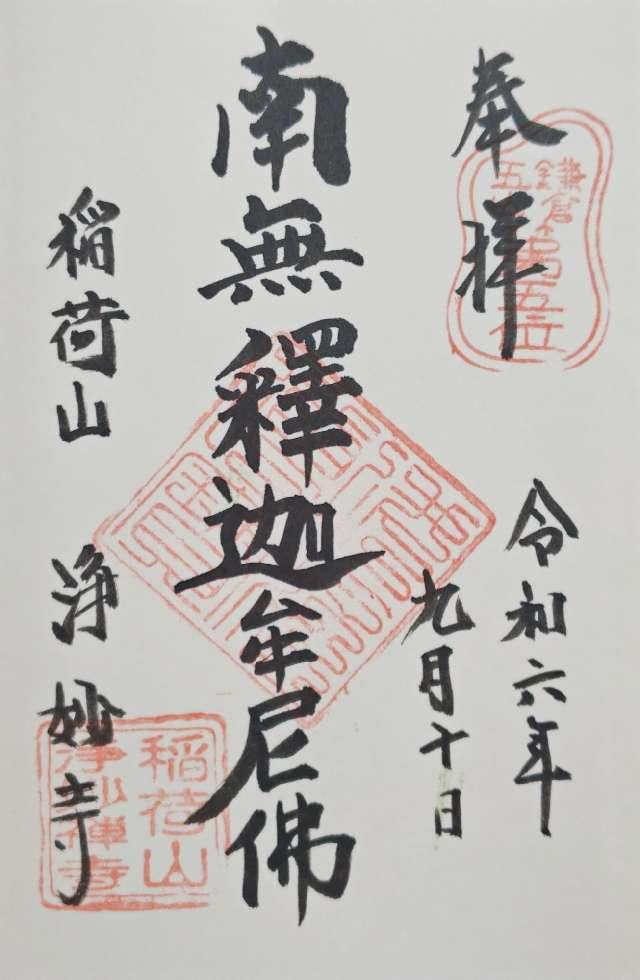 奉拝
鎌倉
五山
第五位
令和六年
九月十日
南無釋迦牟尼佛
稲荷山 浄妙寺
稲荷山
浄妙禅寺